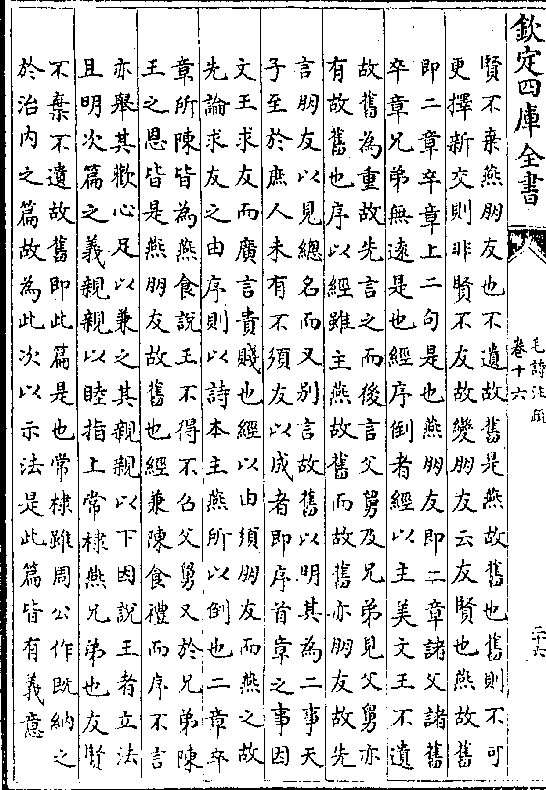 欽定四庫全書
毛詩注疏
卷十六
二十六
賢不棄燕朋友也不遺故舊是燕故舊也舊則不可
更擇新交則非賢不友故變朋友云友賢也燕故舊
即二章卒章上二句是也燕朋友即二章諸父諸舊
卒章兄弟無遠是也經序倒者經以主美文王不遺
故舊為重故先言之而後言父舅及兄弟見父舅亦
有故舊也序以經雖主燕故舊而故舊亦朋友故先
言朋友以見總名而又別言故舊以明其為二事天
子至於庶人未有不須友以成者即序首章之事因
文王求友而廣言貴賤也經以由須朋友而燕之故
先論求友之由序則以詩本主燕所以倒也二章卒
章所陳皆為燕食說王不得不召父舅又於兄弟陳
王之恩皆是燕朋友故舊也經兼陳食禮而序不言
亦舉其歡心足以兼之其親親以下因說王者立法
且明次篇之義親親以睦指上常棣燕兄弟也友賢
不棄不遺故舊即此篇是也常棣雖周公作既納之
於治內之篇故為此次以示法是此篇皆有義意